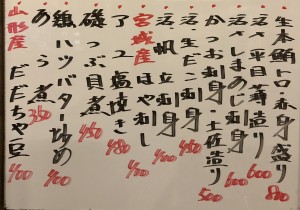 生本鮪トロ赤身盛り 800
活〆平目薄造り 600
活しまあじ刺身 600
かつお刺身 土佐造り 500
活生だこ刺身 450
活帆立刺身 400
宮城産 ほや刺し 400
アユ塩焼き 480
磯つぶ貝煮 450
鶏ハツバター炒め 400
あら煮 350
山形産 だだちゃ豆 400